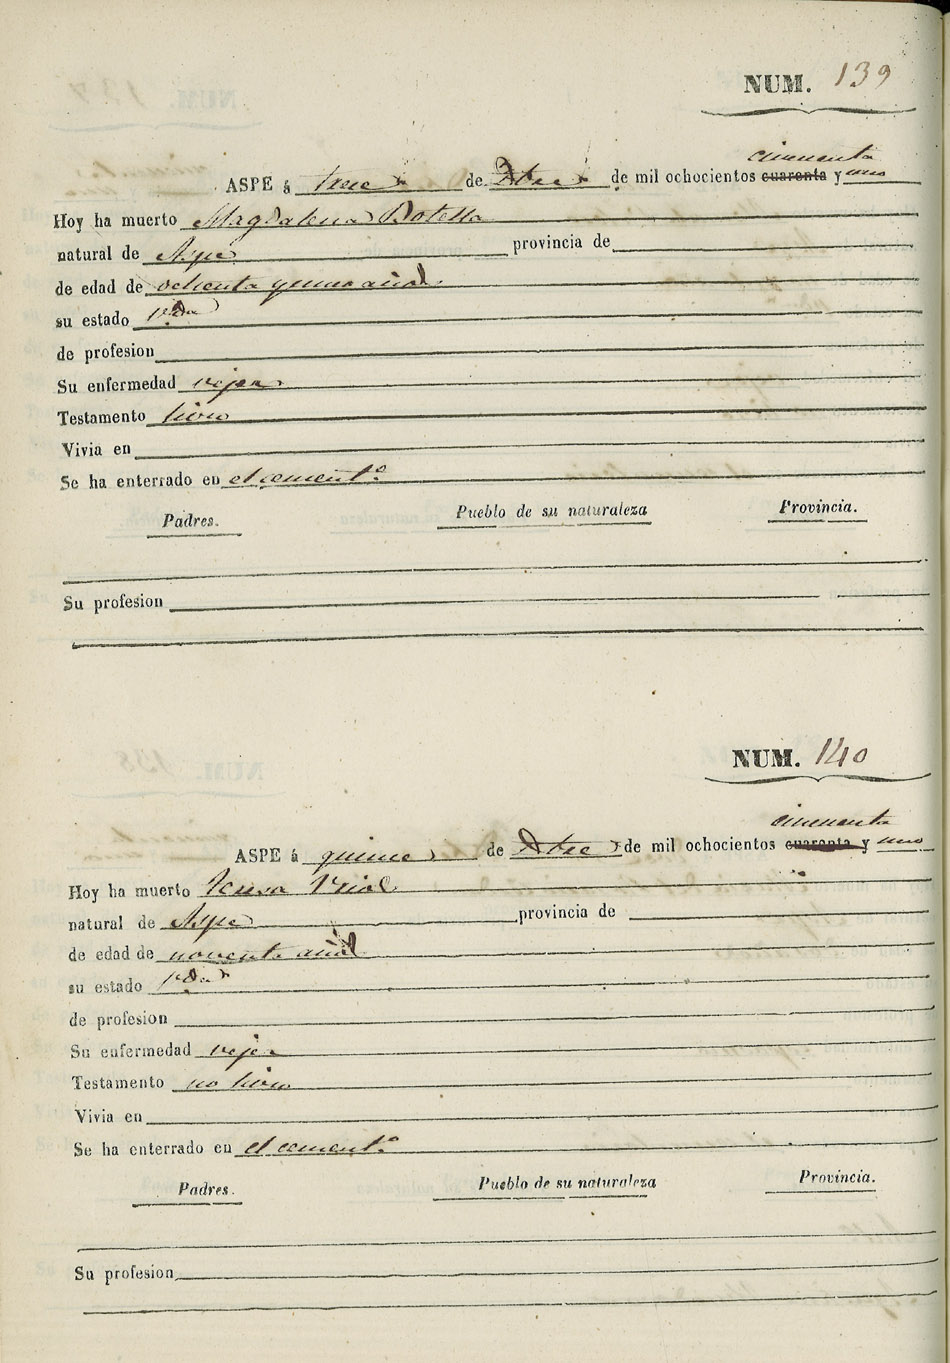 NUM. 139
cincuenta
ASPE á trece de Dbre de mil ochocientos cuarenta y uno
Hoy ha muerto Magdalena Botella
natural de Aspe provincia de
de edad de ochenta y uno años
su estado Vda
de profesion
Su enfermedad vejez
Testamento hizo
Vivia en
Se ha enterrado en el cementº
Padres. Pueblo de su naturaleza Provincia.
Su profesion
NUM. 140
cincuenta
ASPE á quince de Dbre de mil ochocientos cuarenta y uno
Hoy ha muerto Teresa
natural de Aspe provincia de
de edad de noventa años
su estado Vda
de profesion
Su enfermedad vejez
Testamento no hizo
Vivia en
Se ha enterrado en el cementº
Padres. Pueblo de su naturaleza Provincia.
Su profesion